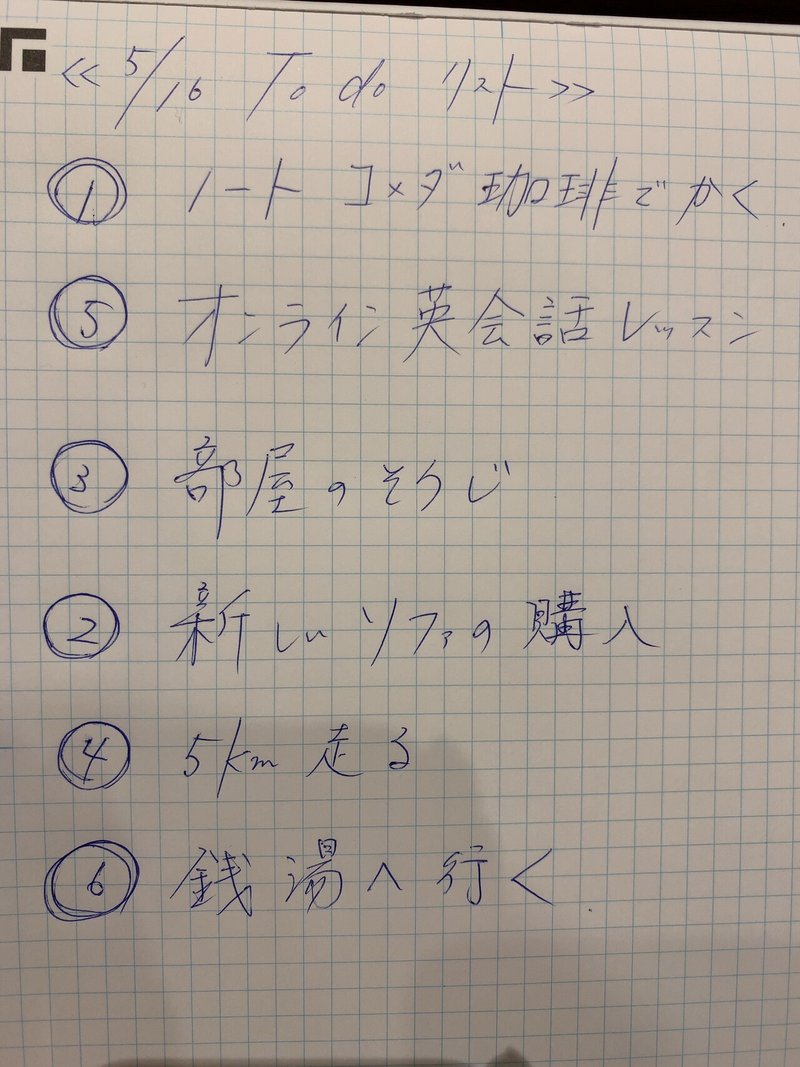 <<5/16 To do リスト>>
① ノート コメダ珈琲でかく.
⑤ オンライン英会話レッスン
③ 部屋のそうじ
② 新しいソファの購入
④ 5km 走る
⑥ 銭湯へ行く.